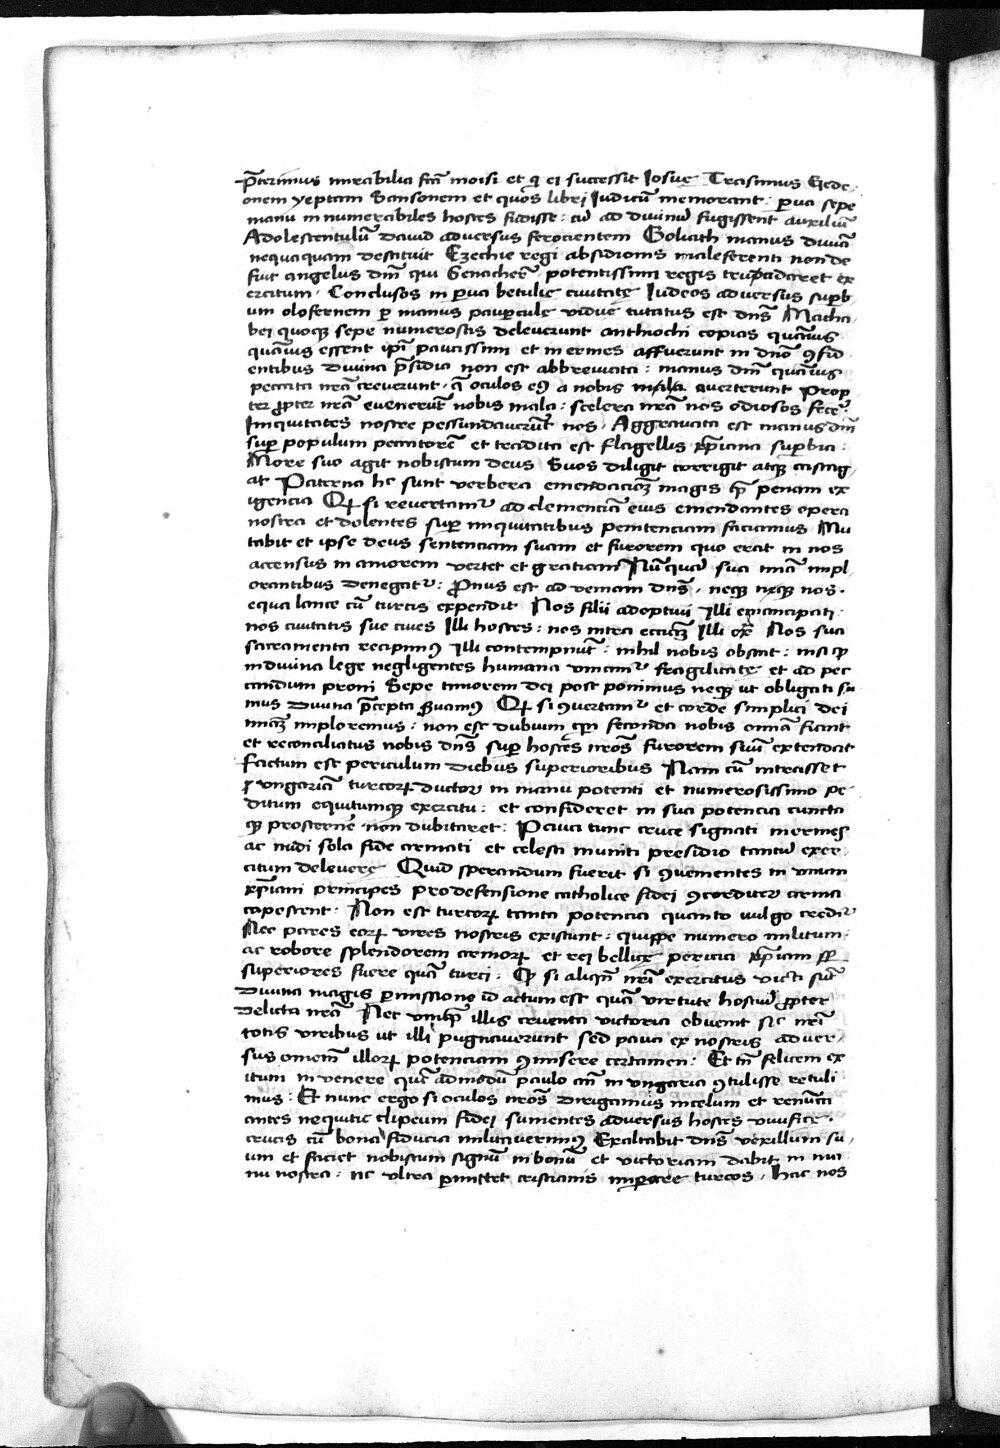 p̄terimus mirabilia sc̄i moisi et q̄ ei successit Iosue Trasimus Gede-
onem yeptam Sansonem et quos libri Iudicū memorant: parua sepe
manu innumerabiles hostes fudisse: cū ad diuinū fugissent auxiliū
Adolescentulū Dauid aduersus ferocientem Goliath manus diuina
nequaquam destituit Ezechie regi absidionis maleferenti non de
fuit angelus dn̄i qui Senacherib potentissimi regis trucidaret ex
ercitum. Conclusos in parua betulie ciuitate Iudeos aduersus superb
um olofernem per manus paupercule vidue tutatus est dn̄s Macha
bei quoqȝ sepe numerosas deleuerunt anthiochi copias quāuis
quāuis essent ip̄i paucissimi et inermes affuerunt in dn̄o ꝯfid
entibus diuina p̄sidia non est abbreuiata: manus dn̄i quāuis
peccata nr̄a creuerunt. q̄ oculos eiꝰ a nobis mala auerterunt Prop
ter ꝓpter nr̄a euenerūt nobis mala: scelera nr̄a nos odiosos fecer̄
Iniquitates nostre pessundauerūt nos. Aggrauata est manus dn̄i
super populum peccatorē et tradita est flagellis xp̄iana superbia:
More suo agit nobiscum deus Suos diligit corrigit atqȝ castig
at Paterna hec sunt verbera emendacioȝ magis q̄ penam ex
igencia Qꝛ si reuertamur ad clementiam eius emendantes opera
nostra et dolentes super iniquitatibus penitenciam faciamus Mu
tabit et ipse deus sentenciam suam et furorem quo erat in nos
accensus in amorem vertet et gratiam Nūquā sua mīa impl
orantibus denegatur: Pronus est ad veniam dn̄s. neqȝ neqȝ nos.
equa lance cū turcis expendit Nos filii adoptiui Illi emancipati.
nos ciuitatis sue ciues Illi hostes: nos intra ecciaȝ Illi ex̄ Nos sua
sacramenta recipimꝰ Illi contempnūt: nihil nobis obstat: nisi qȝ
in diuina lege negligentes humana vincimur fragilitate et ad pec
candum proni Sepe timorem dei post ponimus neqȝ ut obligati su
mus diuina p̄cepta seruamꝰ Qꝛ si ꝯuertamur et corde simplici dei
miaȝ imploremus: non est dubium quin secunda nobis omnia fiant
et reconciliatus nobis dn̄s super hostes nr̄os furorem suū extendat
Factum est periculum diebus superioribus Nam cū intrasset
ꝑ vngariā turcoꝝ ductor in manu potenti et numerosissimo pe
ditum equitumqȝ exercitu: et consideret in sua potencia cuncta
qȝ prosternere non dubitaret: Pauci tunc cruce signati inermes
ac nudi sola fide armati et celesti muniti presidio tantū exer-
citum deleuere Quid sperandum fuerit si ꝯuenientes in vnum
xp̄iani principes pro defensione catholice fidei ꝯcorditer arma
capescent: Non est turcoꝝ tanta potencia quanto uulgo creditur
Nec pares eoꝝ vires nostris existunt: quippe numero militum:
ac robore splendorem armoꝝ et rei bellice pericia xp̄iani ꝑꝑ-
superiores fuere quā turci: Qȝ si aliqn̄ nr̄i exercitus victi sūt
Diuina magis permissione id actum est quā virtute hostiū ꝓpter
delicta nr̄a Nec vnqȝ illis cruenta victoria obuenit nec nr̄i
totis viribus ut illi pugnauerunt sed pauci ex nostris aduer-
sus omnem illoꝝ potenciam ꝯmisere certamen: Et tn̄ felicem ex
itum inuenere que ad modū paulo an̄ in vngaria ꝯtulisse retuli
mus: Et nunc ergo si oculos nr̄os dirigamus in celum et renūcci
antes nequitie clipeum fidei sumentes aduersus hostes viuifice.
crucis cū bona fiducia militauerimꝰ Exaltabit dn̄s vexillum su-
um et faciet nobiscum signū in bonū et victoriam dabit in ma
nu nostra: nec ultra permittet cristianis imperare turcos. Hac nos